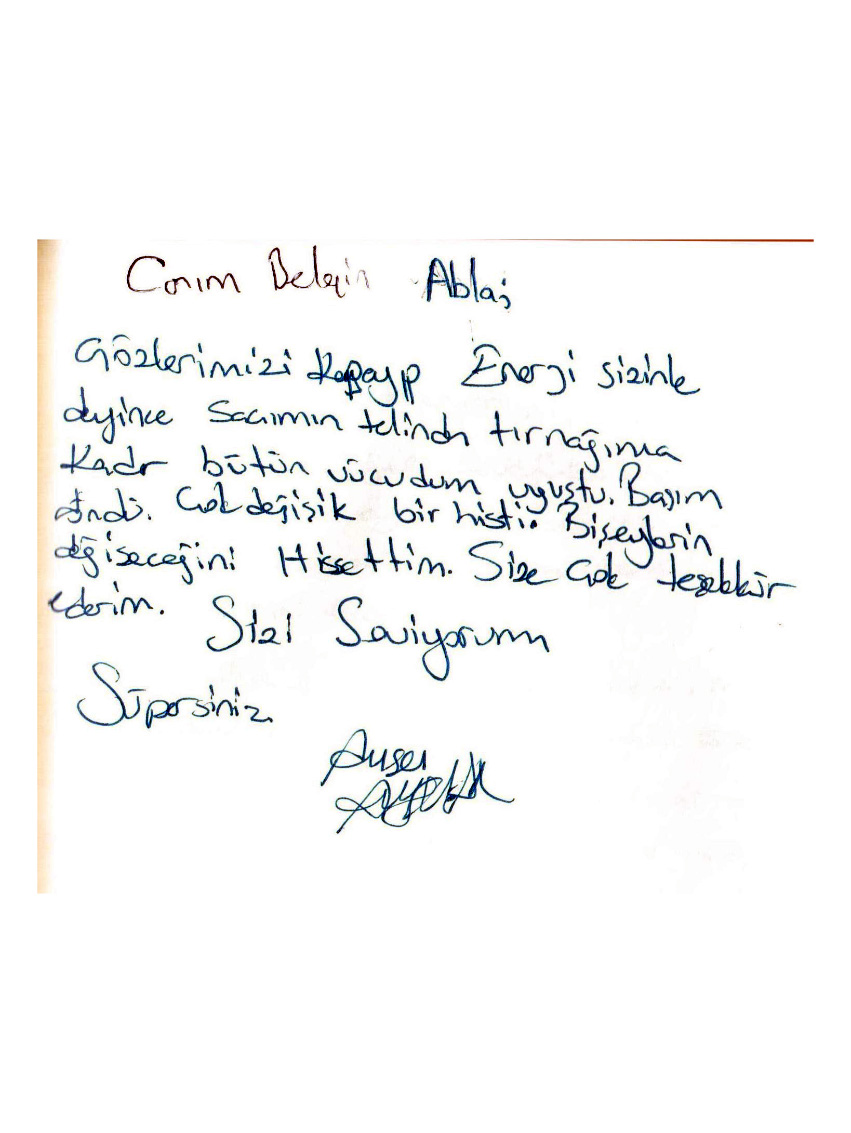 Canım Belgin Abla;
Gözlerimizi Kapayıp Enerji sizinle
deyince Saçımın telinden tırnağıma
Kadar bütün vücudum uyuştu. Başım
döndü. Çok değişik bir histi. Bişeylerin
değişeceğini Hissettim. Size Çok teşekkür
ederim.
Sizi Seviyorum
Süpersiniz.